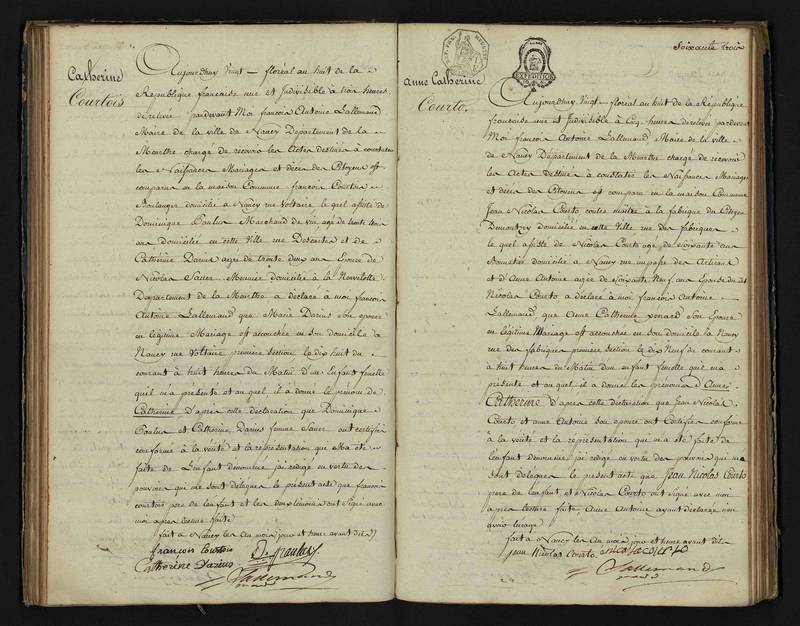 Catherine
Courtois
Aujourdhuy Vingt floréal au huit de la
République francaise une et Indivisible à trois heures
de relevée pardevant Moi françois Antoine Lallemand
Maire de la ville de Nancy Département de la
Meurthe chargé de recevoir les Actes destinés à constater
les Naissances Mariages et décès des Citoyens est
comparu en la maison Commune françois Courtois
Boulanger domicilié à Nancy rue Voltaire le quel assisté de
Dominique Paulus Marchand de vin, agé de trente trois
ans domicilié en cette Ville rue Descartes et de
Catherine Darius agée de trente deux ans Epouse de
Nicolas Saver Meunier domiciliée à la Neuvelotte
Département de la Meurthe a déclaré à moi françois
Antoine Lallemand que Marie Darius son epouse
en légitime Mariage est accouchée en son domicile à
Nancy rue Voltaire premiere section le dix huit du
courant à huit heures du Matin d'un Enfant femelle
qu'il m'a présenté et au quel il a donné le prénom de
Catherine D'après cette déclaration que Dominique
Paulus et Catherine Darius femme Saver ont certifiée
conforme à la vérité et la représentation qui M'a été
faite de L'enfant denommé j'ai rédigé en vertu des
pouvoirs qui me sont délégués le présent acte que françois
courtois pere de l'enfant et les deux témoins ont Signé avec
moi apres lecture faite
fait à Nancy les An mois jour et heure avant dits
françois Courtois D. Paulus
Catherine Darius
Lallemand
maire
Soixante trois
EXPEDITION
Anne Catherine
Courto.
Aujourdhuy Vingt floréal au huit de la République
francaise une et Indivisible à Cinq heures de relevée pardevant
Moi françois Antoine Lallemand Maire de la ville
de Nancy Département de la Meurthe chargé de recevoir
les Actes destinés à constater les Naissances Mariages
et décès des Citoyens est comparu en la maison Commune
Jean Nicolas Courto contre maître à la fabrique du Citoyen
domicilié en cette Ville rue des fabriques
le quel assisté de Nicolas Courto agé de Soixante ans
Bonnetier domicilié à Nancy rue impasse des Artisans
et d'Anne Antoine agée de Soixante Neuf ans Epouse du dit
Nicolas Courto a déclaré à moi françois Antoine
Lallemand, que Anne Catherine ponard son Epouse
en légitime Mariage est accouchée en son domicile à Nancy
rue des fabriques premiere section le dix Neuf du courant
à huit heures du Matin d'un enfant femelle qu'il m'a
présenté et au quel il a donné les prénoms d'Anne
Catherine D'après cette déclaration que Jean Nicolas
Courto et anne Antoine son epouse ont Certifiée conforme
à la vérité et la représentation qui m'a été faite de
l'enfant denommé, j'ai rédigé en vertu des pouvoirs qui me
sont délégués le présent acte que Jean Nicolas Courto
pere de l'enfant et Nicolas Courto ont signé avec moi
apres lecture faite, Anne Antoine ayant déclaré n'en
avoir l'usage
fait à Nancy les An mois jour et heure avant dits
Jean Nicolas Courto. nicolas courto
Lallemand
maire